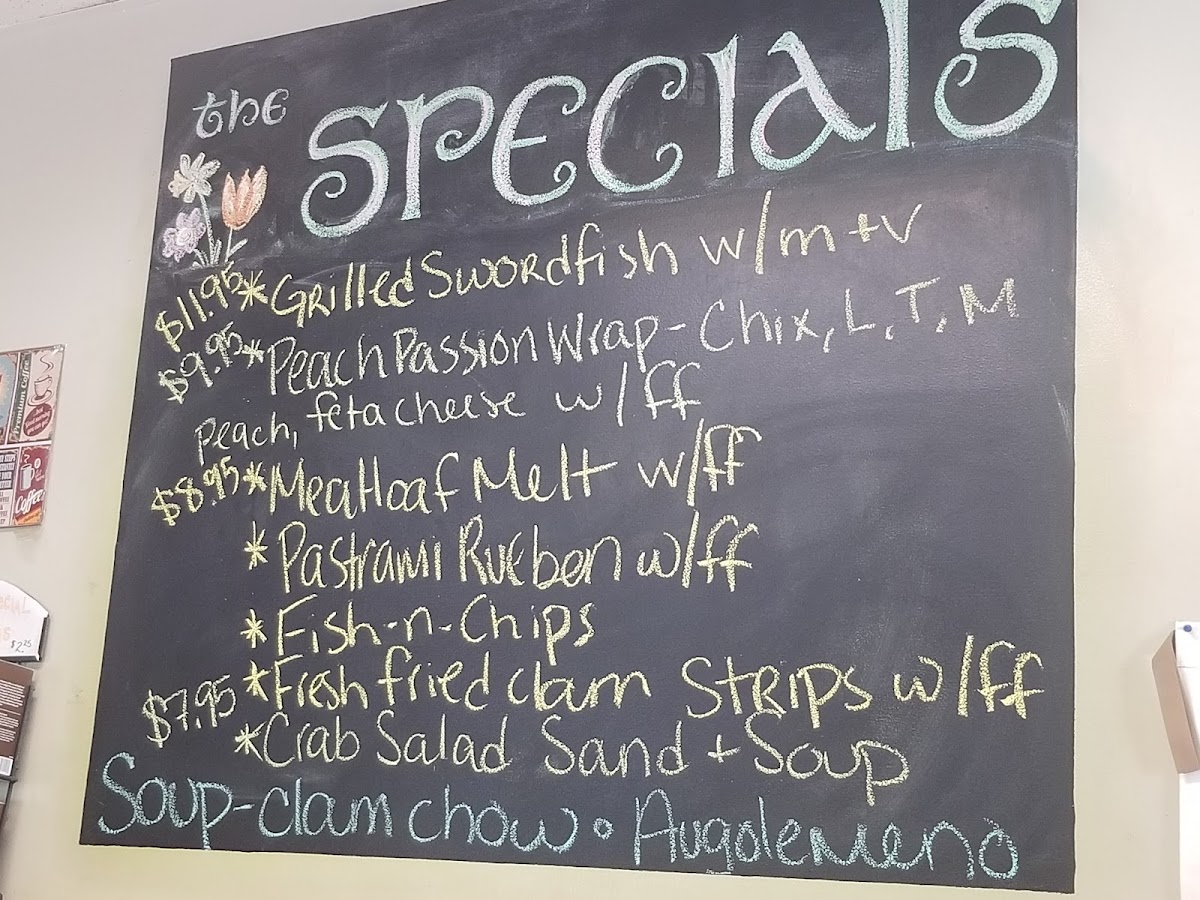 the SPECIALS
$11.95 *Grilled Swordfish w/m+v
$9.95 *Peach Passion Wrap - Chix, L, T, M
Peach, feta cheese w/ff
$8.95 *Meatloaf Melt w/ff
*Pastrami Rueben w/ff
*Fish-n-Chips
*Fresh fried clam Strips w/ff
$7.95 *Crab Salad Sand + Soup
Soup-clam chow • Augolemeno
Premium Coffee
Coffee
$2.25